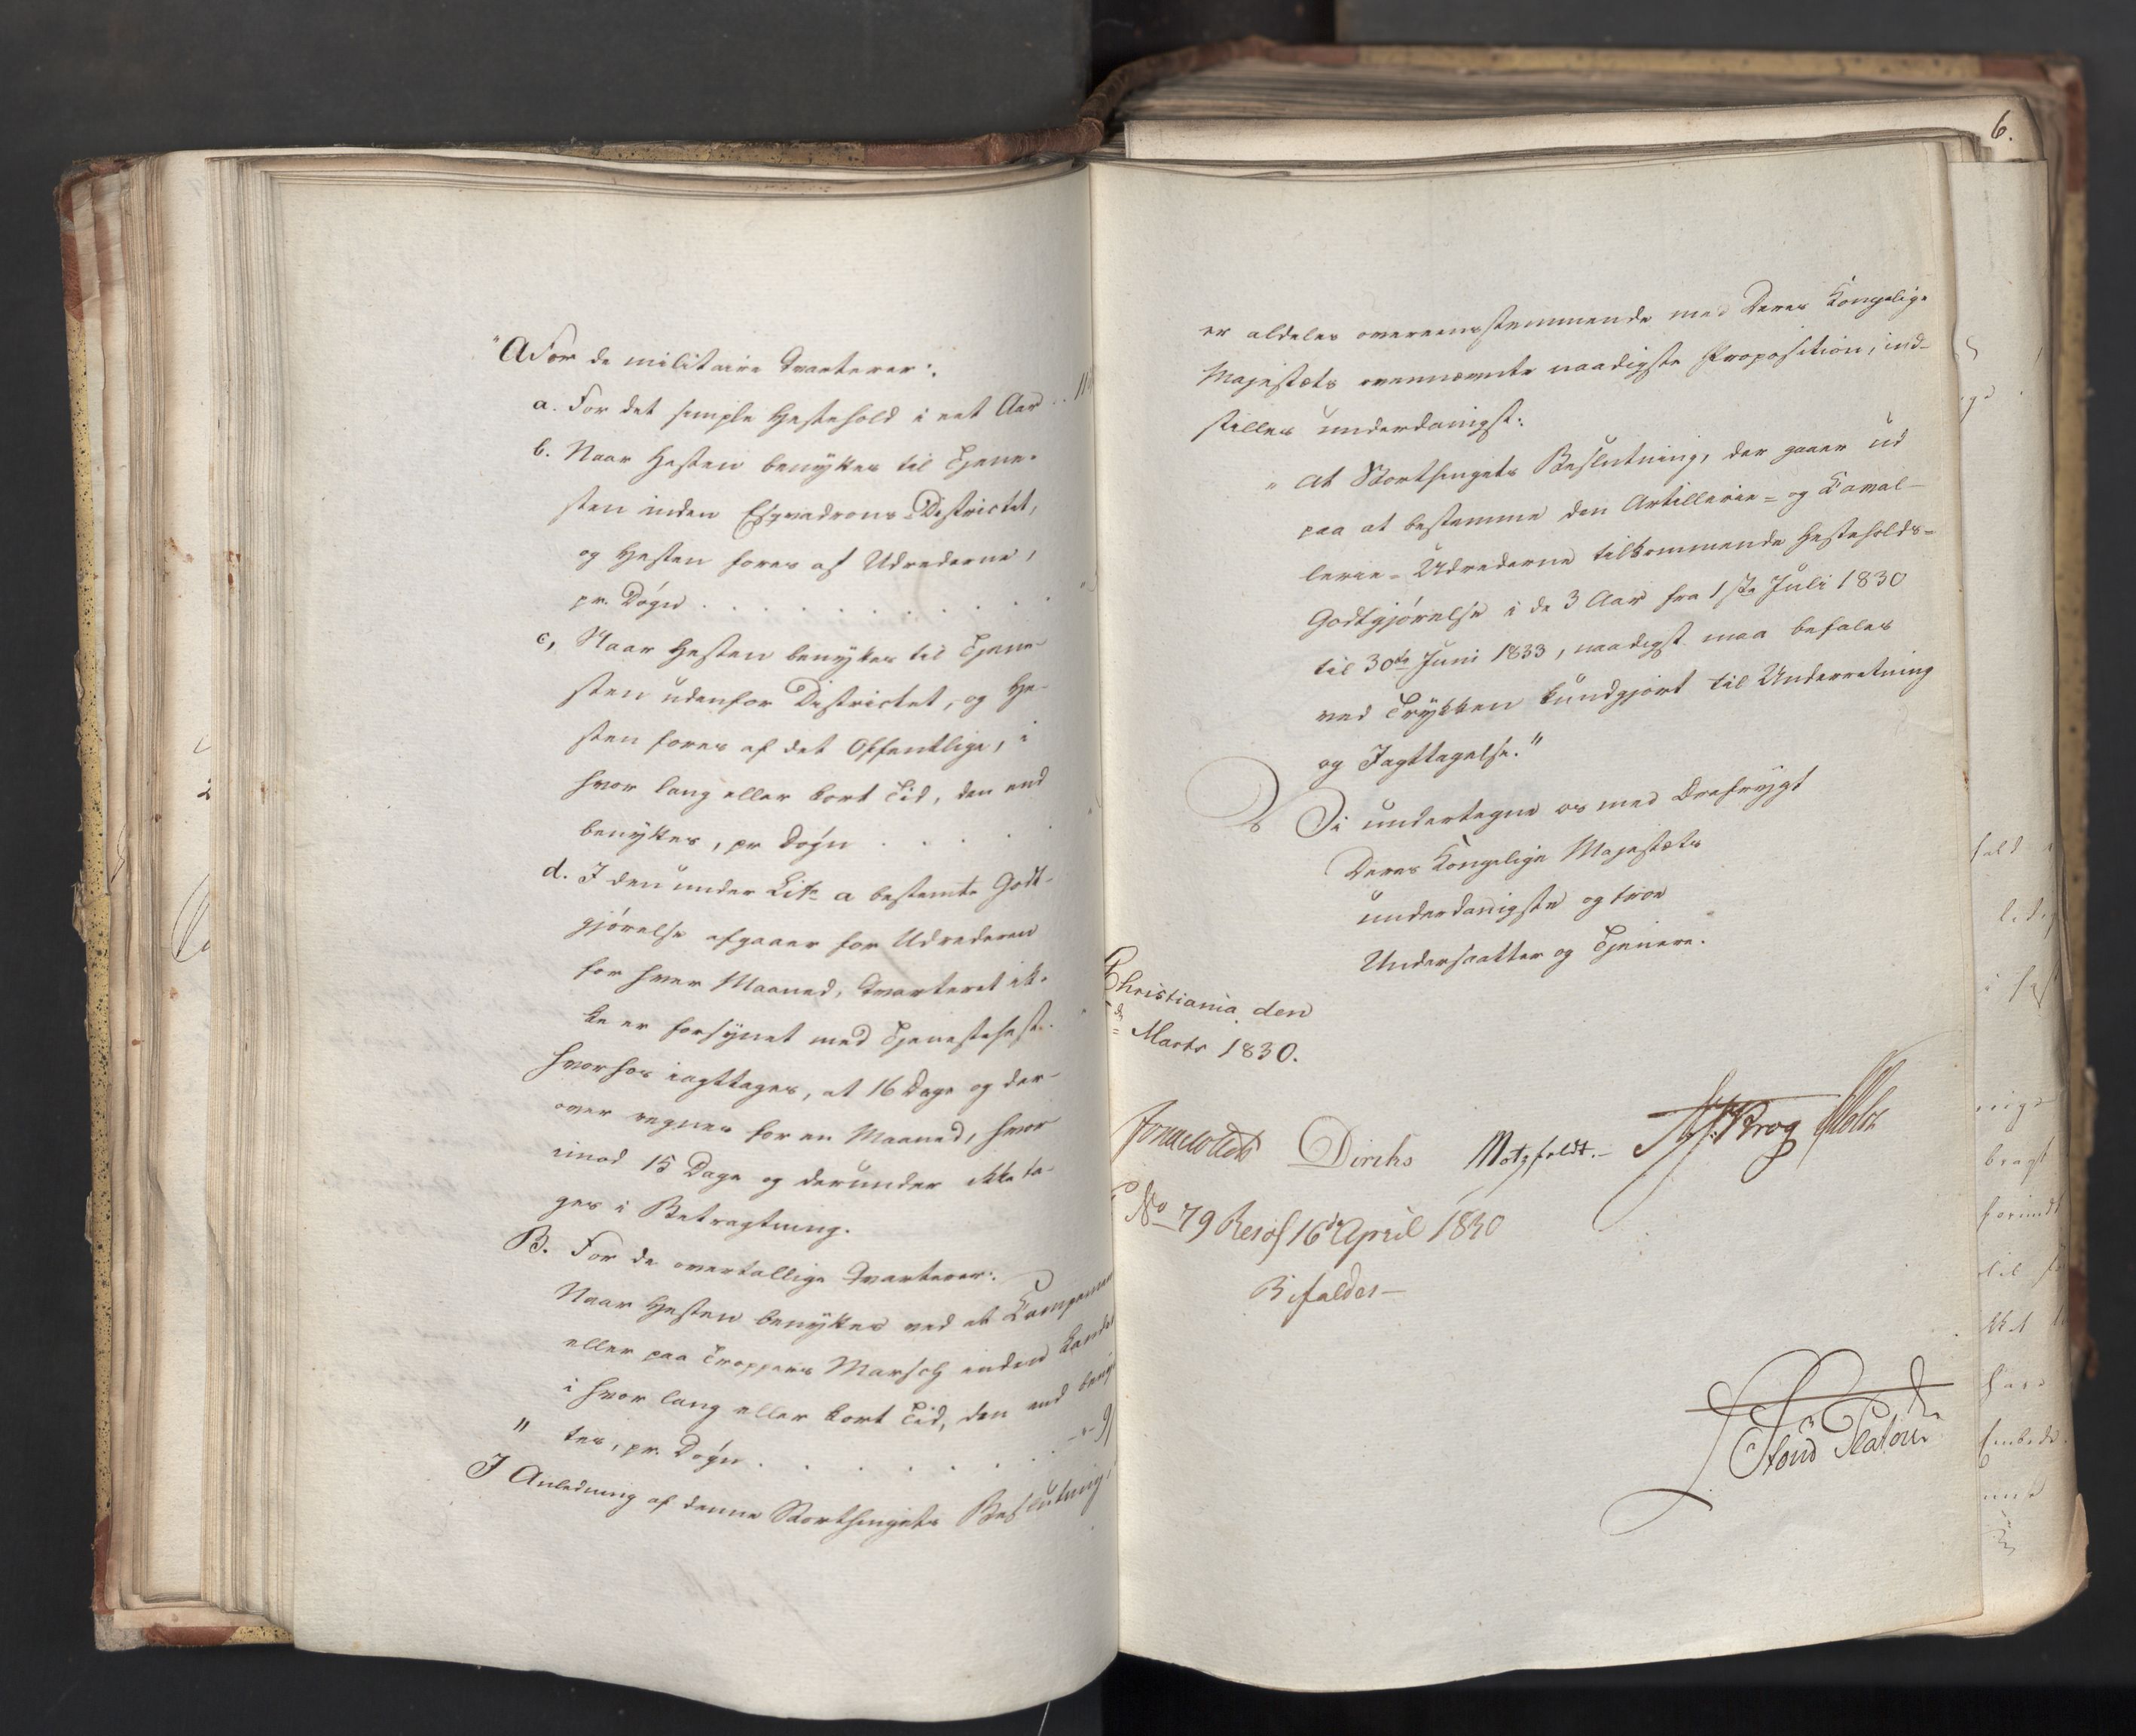 "A For de militaire Qvarterer:
a. For det simple Hestehold i eet Aar ..
b. Naar Hesten benyttes til Tjene-
sten inden Esqvadrons-Districtet,
og Hesten fores af Udrederne,
pr. Døgn . . . . . . . . . .
c, Naar Hesten benyttes til Tjene-
sten udenfor Districtet, og He-
sten fores af det Offentlige, i
hvor lang eller kort Tid, den end
benyttes, pr Døgn . . . .
d. I den under Litr a bestemte Godt-
gjørelse afgaaer for Udrederen
for hver Maaned, Qvarteret ik-
ke er forsynet med Tjenestehest.
Hvorhos iagttages, at 16 Dage og der-
over regnes for en Maaned, hvor
imod 15 Dage og derunder ikke ta-
ges i Betragtning.
B. For de overtallige Qvarterer:
Naar Hesten benyttes ved et
eller paa Troppers Marsch inden
i hvor lang eller kort Tid, den end
" tes, pr. Døgn . . . . . . .
I Anledning af denne Storthingets Beslutning,
6.
er aldeles overeensstemmende med Deres Kongelige
Majestæts ovennævnte naadigste Proposition, ind-
stilles underdanigst:
" At Storthingets Beslutning, der gaaer ud
paa at bestemme den Artillerie- og Kaval-
lerie-Udrederne tilkommende Hesteholds-
Godtgjørelse i de 3 Aar fra 1ste Juli 1830
til 30te Juni 1833, naadigst maa befales
ved Trykken kundgjort til Underretning
og Iagttagelse."
Vi undertegne os med Ærefrygt
Deres Kongelige Majestæts
underdanigste og troe
Undersaatter og Tjenere.
Christiania den
Marts 1830.
Diriks Motzfeldt. Krog
No 79 Resol 16de April 1830
Bifaldes